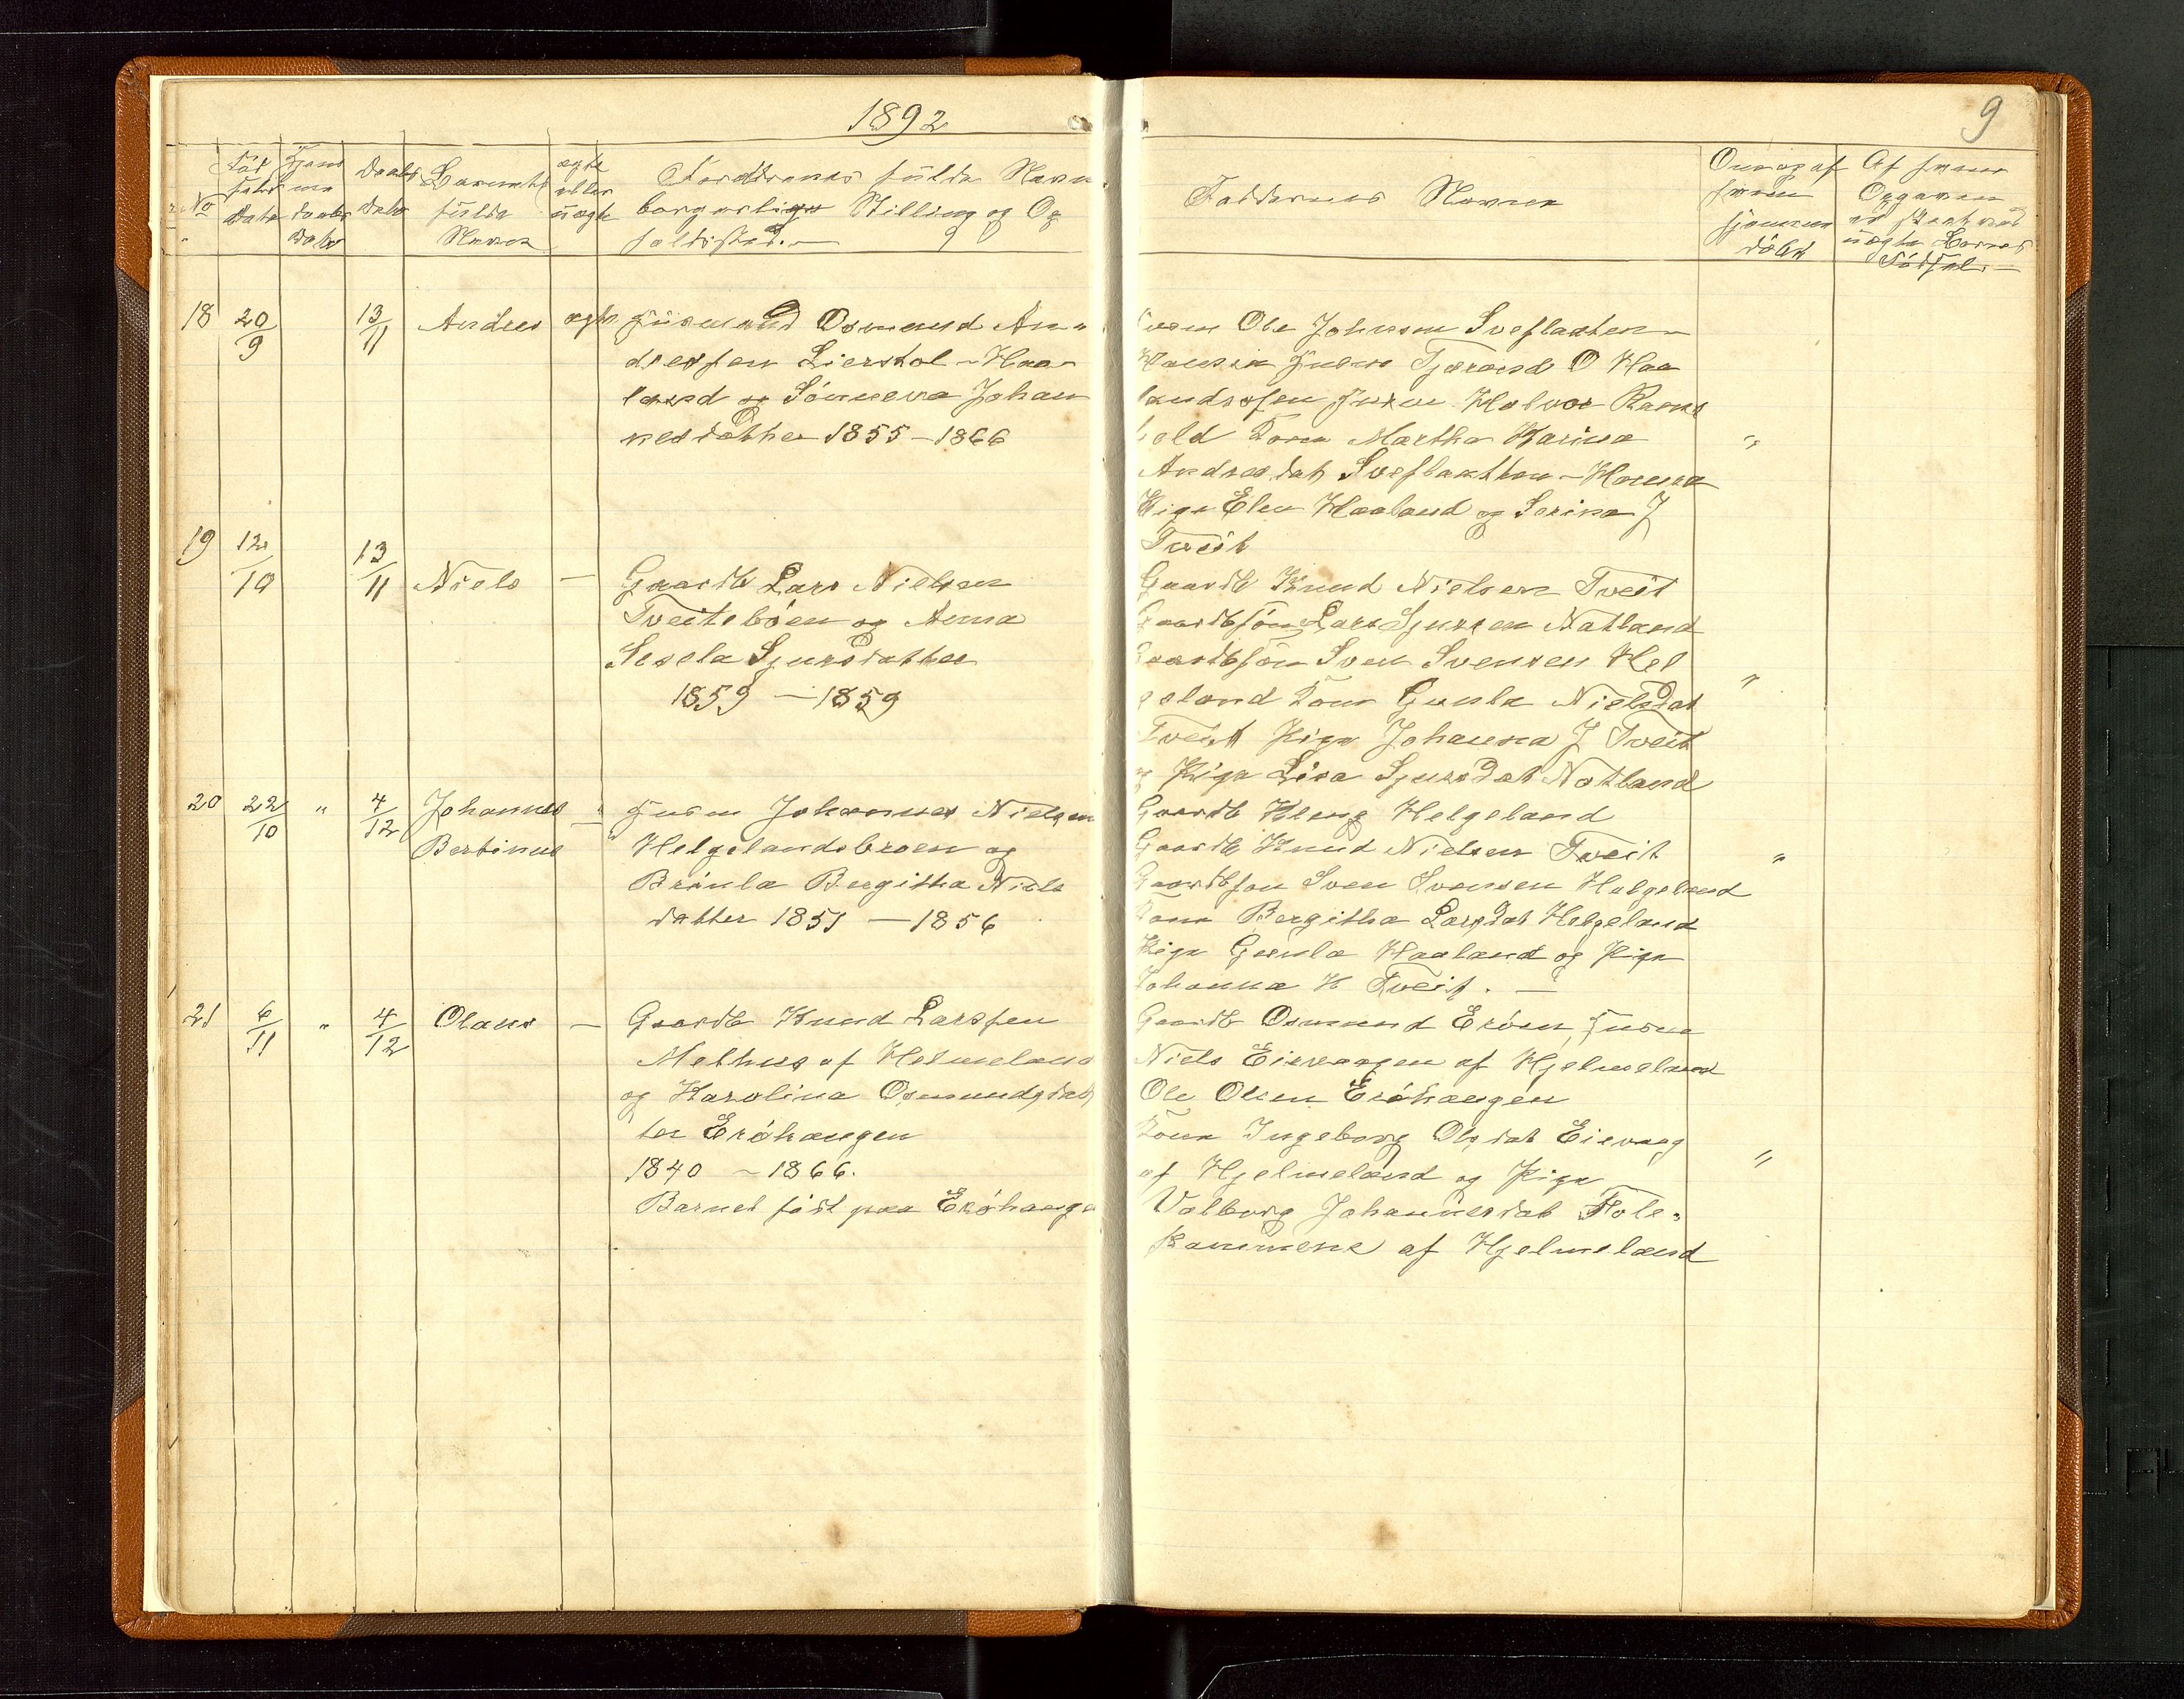 1892
9
No
Fød
sels
Date
Hjem
me
daabs
Date
Daabs
Date
Barnets
fulde
Navn
ægte
eller
uægte
Forældrenes fulde Navn
borgerlige Stilling og Op
holdssted.
Faddernes Navne
Om og af
hvem
hjemme
døbt
Af hvem
Opgaven
er
uægte Barns
Fødsel.
18 20/9 13/11 Andreas ægte Huusmand Osmund An-
dreassen Lierstøl - Haa-
land og Sønneva Johan
nesdatter 1855 - 1866
Ole Johnsen Sveflaaten
Huusm Tjærand O Haa
landsosen Huusm Halvor Ravns
Kone Martha Karina
Andreasdat Sveflaatten - Konen
Pige Elen Haaland og Serina J
Tveit
"
19 12/10 13/11 Niels — Gaardb Lars Nielsen
Tveitebøen og Anna
Sesela Sjursdatter
1859 — 1859
Gaardb Knud Nielsen Tveit
Gaardbsøn Lars Sjursen Natland
Gaardbsøn Sven Svensen Hel
geland Kone Gunla Nielsdat
Tveit Pige Johanna J Tveit
og Pige Lisa Sjursdat Natland
"
20 22/10 " 4/12 Johannes
Bertinus
— Huusm Johannes Nielsen
Helgelandsbroen og
Brønla Bergitha Niels
datter 1851 — 1856
Gaardb Kleng Helgeland
Gaardb Knud Nielsen Tveit
Gaardbsøn Sven Svensen Helgeland
Kone Bergitha Larsdat Helgeland
Pige Gunla Haaland og Pige
Johanna K Tveit. —
"
21 6/11 " 4/12 Olaus — Gaardb Knud Larssen
Melhus af Helmeland
og Karolina Osmundsdat
ter Erøhaugen
1840 - 1866.
Barnet født paa Erøhauge
Gaardb Osmund Erøen, Huusm
Niels Eievaagen af Hjelmeland
Ole Olsen Erøhaugen
Kone Ingeborg Olsdat Eievaag
af Hjelmeland og Pige
Valborg Johannesdat Fole-
kammene af Hjelmeland
"